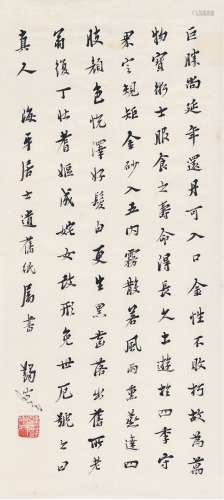 巨勝尚延年還丹可入口金性不敗朽故為萬
物寶術士服食之壽命得長久土遊於四季守
界定規矩金砂入五內霧散若風雨熏蒸達四
肢顏色悅澤好髮白更生黑齒落出舊所老
翁復丁壯耆嫗成姹女改形免世厄號之曰
真人 海平居士道舊紙屬書